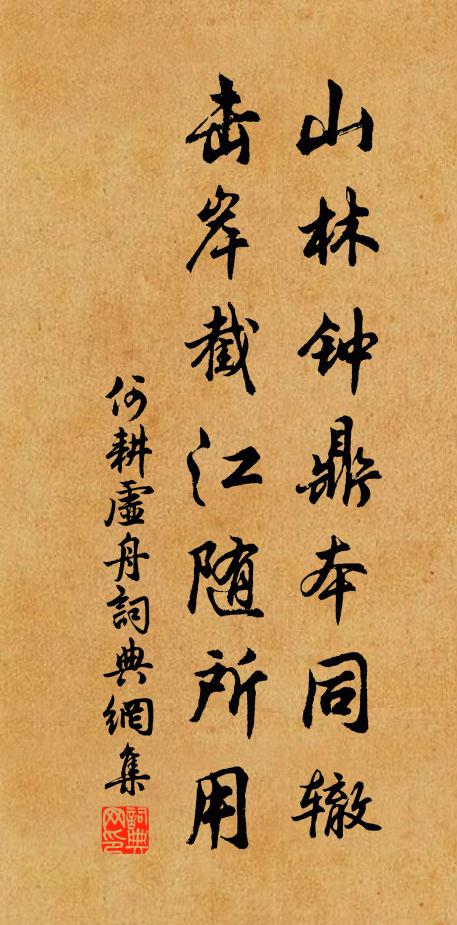 山林钟鼎本同辙
击岸截江随所用
何耕虚舟詞典網集
詞典网印